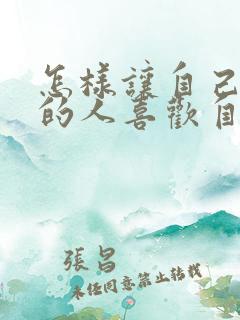 怎樣讓自己
的人喜歡自
張昌
未任同意禁止轉載